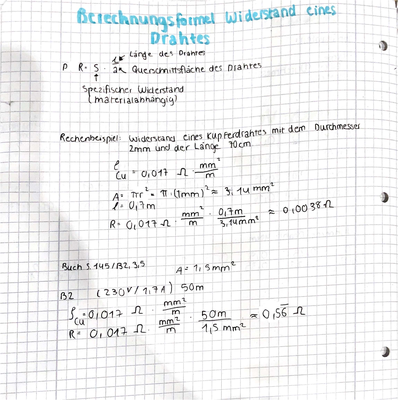 Berechnungsformel Widerstand eines
Drahtes
Länge des Drahtes
P R = S · l/a Querschnittsfläche des Drahtes
Spezifischer Widerstand
(materialabhängig)
Rechenbeispiel: Widerstand eines Kupferdrahtes mit dem Durchmesser
2mm und der Länge 70cm
ρCu = 0,017 Ω · mm²/m
A = πr² = π · (1mm)² ≈ 3,14 mm²
l = 0,7m
R = 0,017 Ω · mm²/m · 0,7m/3,14mm² ≈ 0,0038 Ω
Buch S. 145/B2, 3,5 A = 1,5mm²
B2 (230V/1,7A) 50m
ρCu = 0,017 Ω · mm²/m
R = 0,017 Ω · mm²/m · 50m/1,5 mm² ≈ 0,56̅ Ω